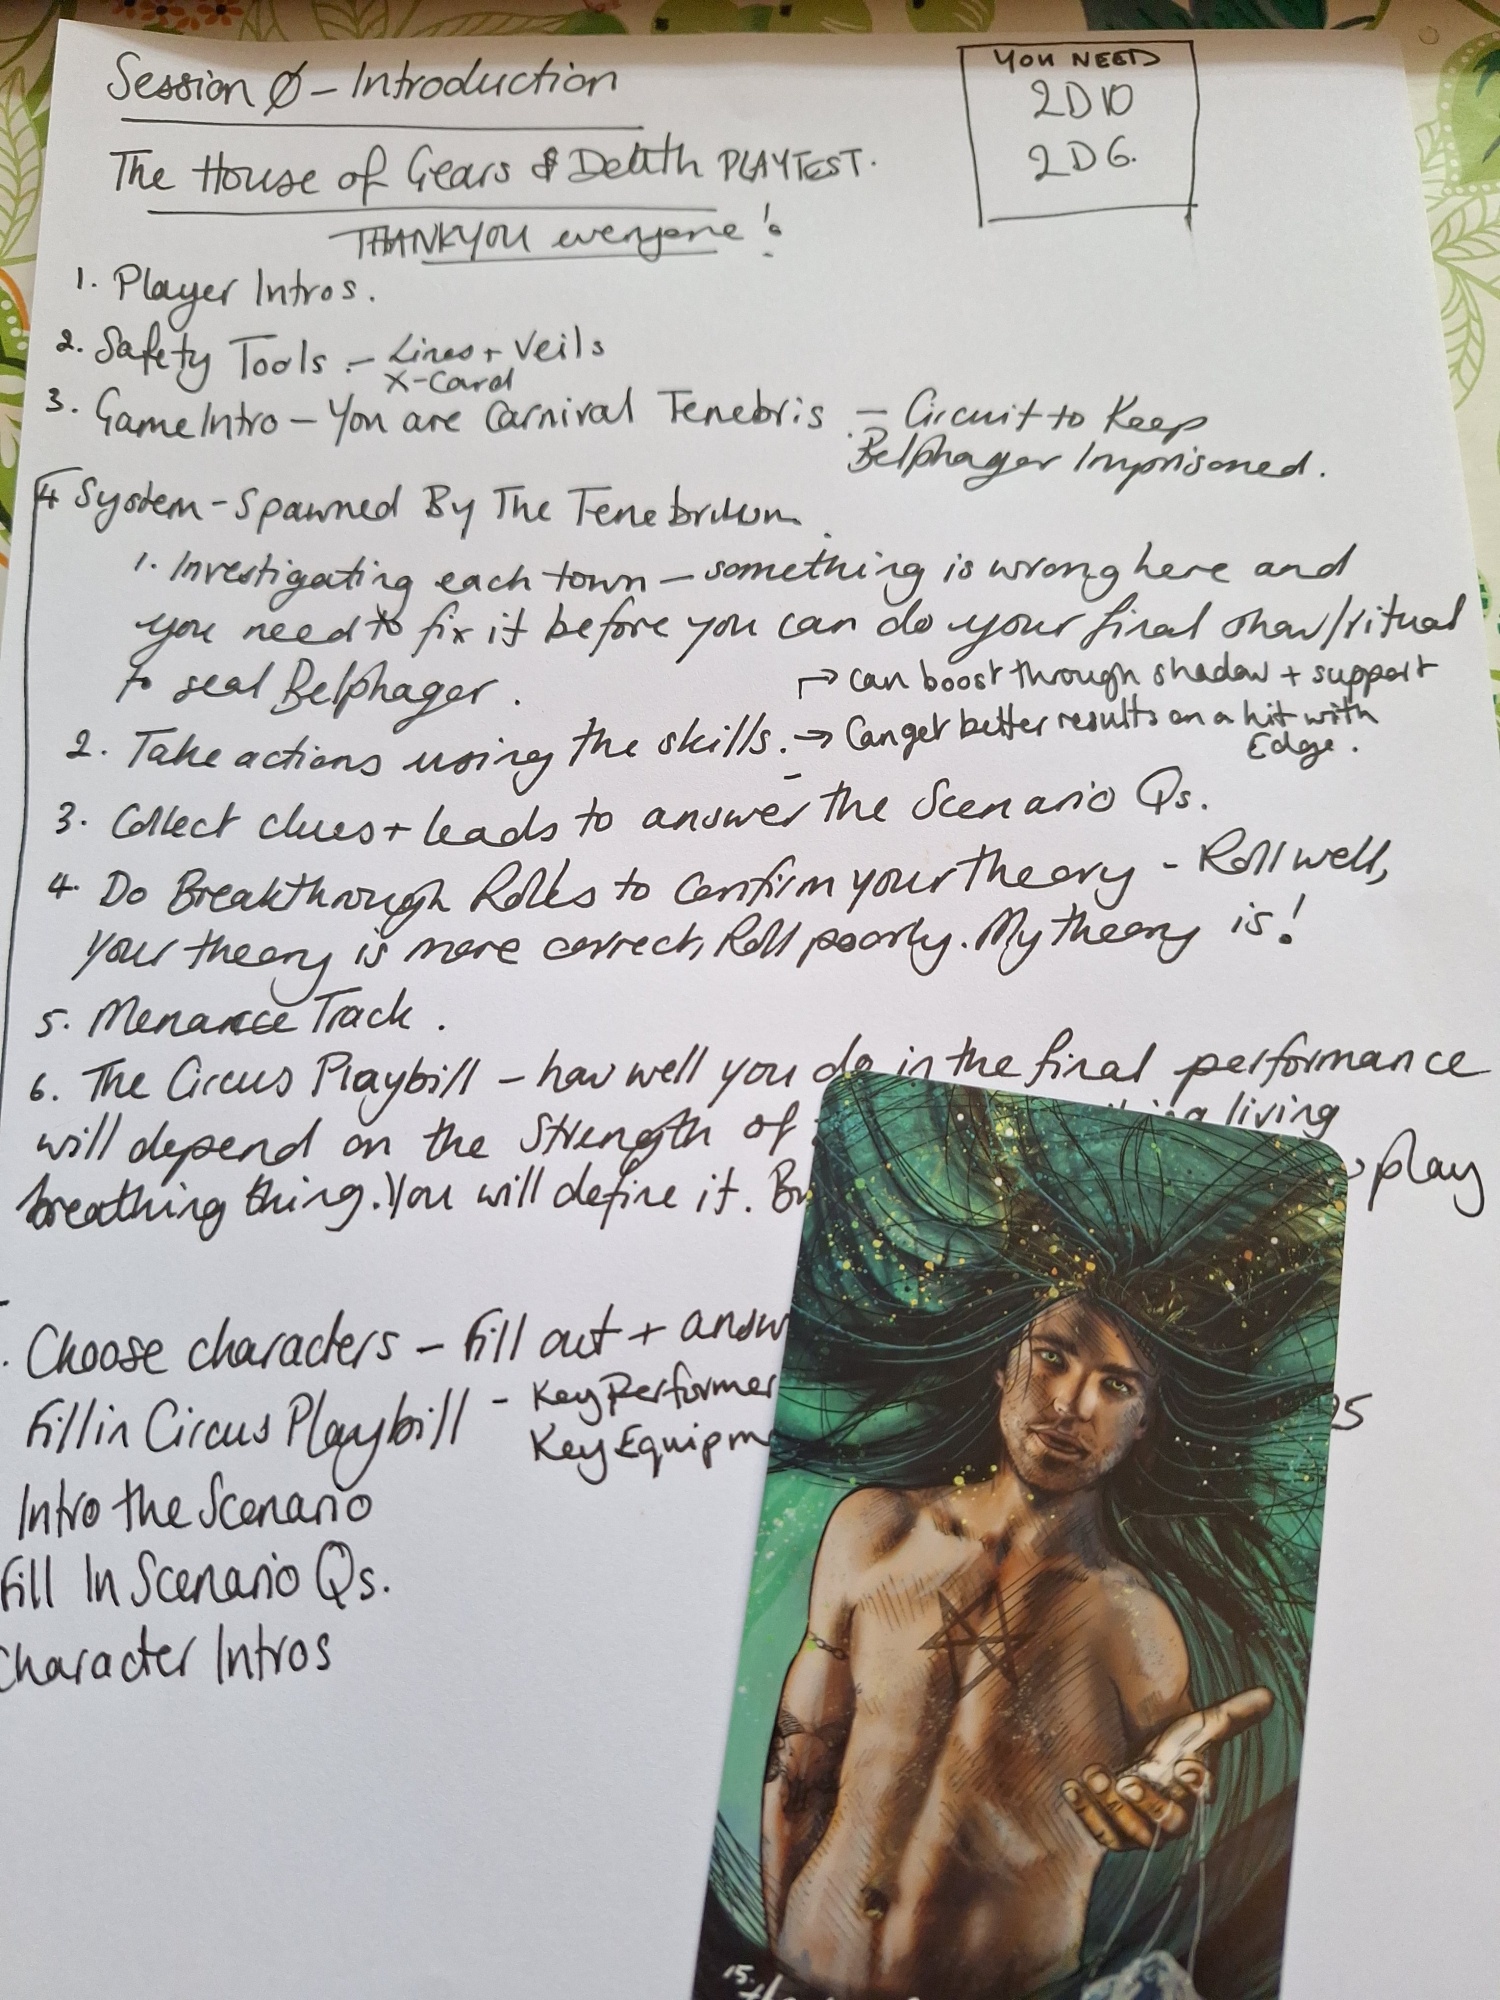 Session 0 - Introduction
YOU NEED
2D10
2D6.
The House of Gears & Death PLAYTEST.
THANKYOU everyone!
1. Player Intros.
2. Safety Tools - Lines + Veils
X-Card
3. Game Intro - You are Carnival Tenebris - Circuit to Keep
Belphager Imprisoned.
4 System - Spawned By The Tenebrium
1. Investigating each town - something is wrong here and
you need to fix it before you can do your final show/ritual
to seal Belphager.
→ can boost through shadow + support
2. Take actions using the skills. → Can get better results on a hit with
Edge.
3. Collect clues + leads to answer the Scenario Qs.
4. Do Breakthrough Rolls to confirm your theory - Roll well,
your theory is more correct, Roll poorly. My theory is!
5. Menance Track.
6. The Circus Playbill - how well you do in the final performance
will depend on the Strength of living
breathing thing. You will define it. play
Choose characters - Fill out +
Fill in Circus Playbill - Key Performer
Key
Intro the Scenario
Fill In Scenario Qs.
Character Intros
15.